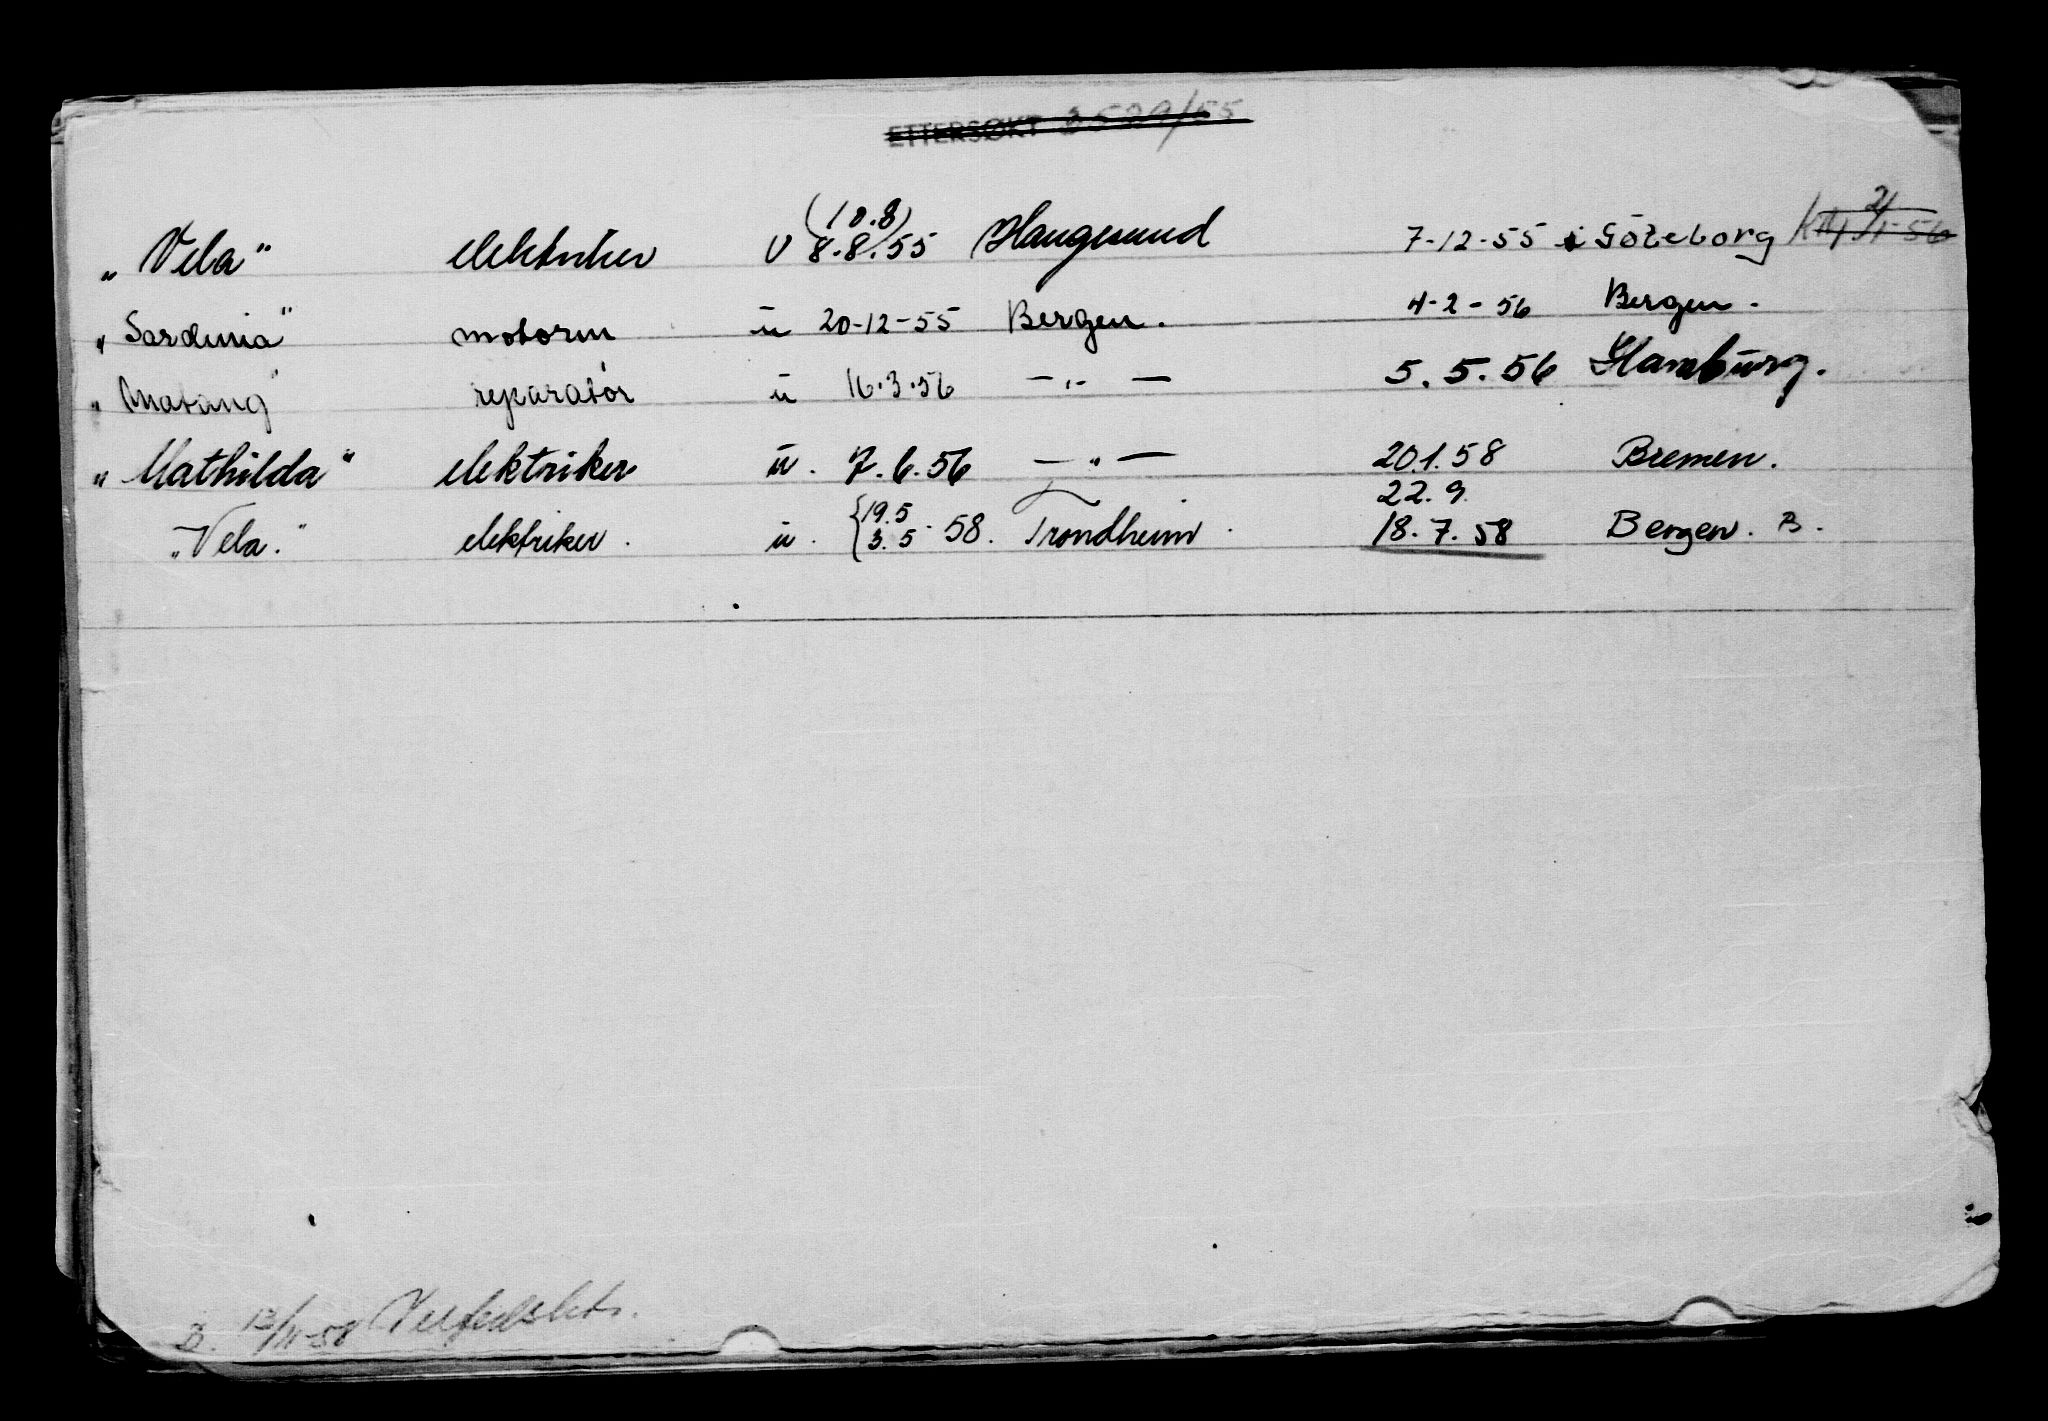 ETTERSØKT 3529/55
(10.8)
„Vela" elektriker u 8.8.55 Haugesund 7-12-55 i Göteborg
„Sardinia" motorm u 20-12-55 Bergen. 4-2-56 Bergen.
„Matang" reparatör u 16.3.56 —„— 5.5.56 Hamburg.
„Mathilda" elektriker u. 7.6.56 —„— 20.1.58 Bremen.
19.5 22.9.
„Vela." elektriker. u. 3.5-58. Trondheim. 18.7.58 Bergen. B.
B. 13/11-58 Velferdskts.